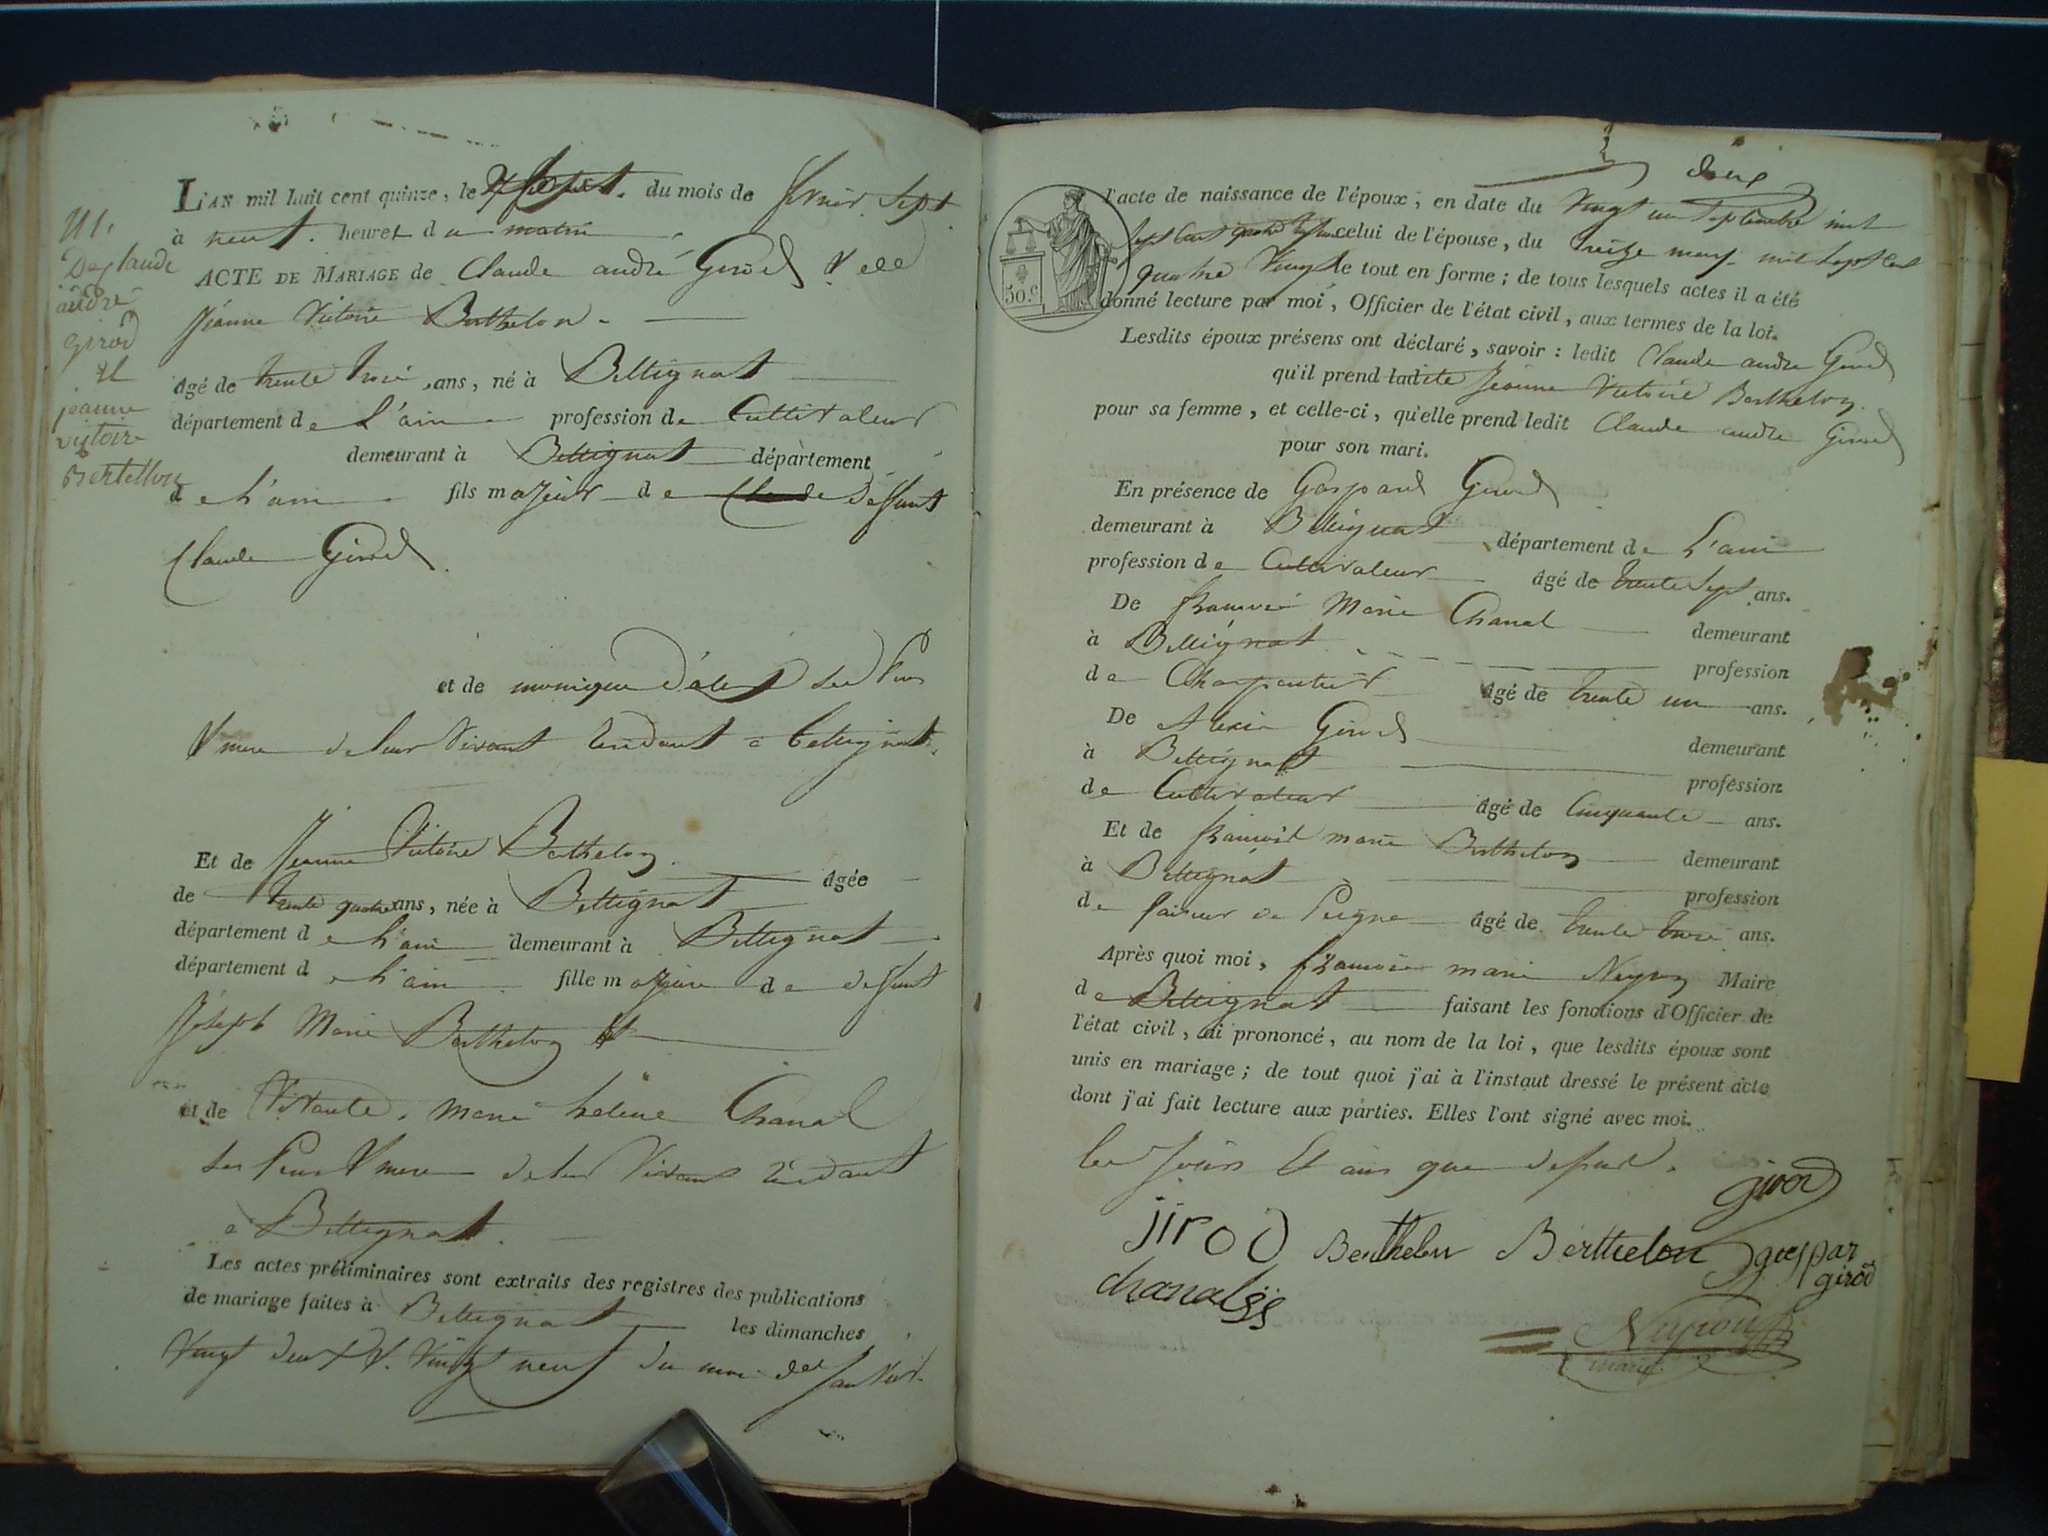 M1.
De claude
andré
girod
et
jeanne
victoire
Bertellon
L'AN mil huit cent quinze, le du mois de février sept
à neuf heures du matin
ACTE DE MARIAGE de Claude andré Girod &
Jeanne Victoire Berthelon
âgé de trente trois ans, né à Bellignat
département de L'ain profession de Cultivateur
demeurant à Bellignat département
de L'ain fils majeur de Claude deffunt
Claude Girod
et de monique ses Père
& mere de leur Vivant Residant a bellignat
Et de Jeanne Victoire Berthelon âgée
de trente quatre ans, née à Bellignat
département de L'ain demeurant à Bellignat
département de L'ain fille majeure de deffunt
Joseph Marie Berthelon &
et de Vivante, Marie helene Chanal
ses Peres & mere de leur Vivant Residant
a Bellignat.
Les actes préliminaires sont extraits des registres des publications
de mariage faites à Bellignat les dimanches
Vingt deux & Vingt neuf du mois de Janvier
deux
50 C.
l'acte de naissance de l'époux, en date du Vingt un Septembre mil
sept cent quatre Vingt un celui de l'épouse, du treize mars mil sept cent
quatre Vingt le tout en forme; de tous lesquels actes il a été
donné lecture par moi, Officier de l'état civil, aux termes de la loi.
Lesdits époux présens ont déclaré, savoir : ledit Claude andre Girod
qu'il prend ladite Jeanne Victoire Berthelon
pour sa femme, et celle-ci, qu'elle prend ledit Claude andre Girod
pour son mari.
En présence de Gaspard Girod
demeurant à Bellignat département de L'ain
profession de Cultivateur âgé de trente sept ans.
De francois Marie Chanal demeurant
à Bellignat profession
de Charpentier âgé de trente un ans.
De Alexis Girod demeurant
à Bellignat profession
de Cultivateur âgé de Cinquante ans.
Et de francois marie Berthelon demeurant
à Bellignat profession
de faiseur de Peigne âgé de trente trois ans.
Après quoi moi, francois marie Neyron Maire
de Bellignat faisant les fonctions d'Officier de
l'état civil, ai prononcé, au nom de la loi, que lesdits époux sont
unis en mariage; de tout quoi j'ai à l'instant dressé le présent acte
dont j'ai fait lecture aux parties. Elles l'ont signé avec moi.
les Jours Et ans que dessus.
girod
jirod Berthelon Berthelon gaspar
girod
chanal
Neyron
maire